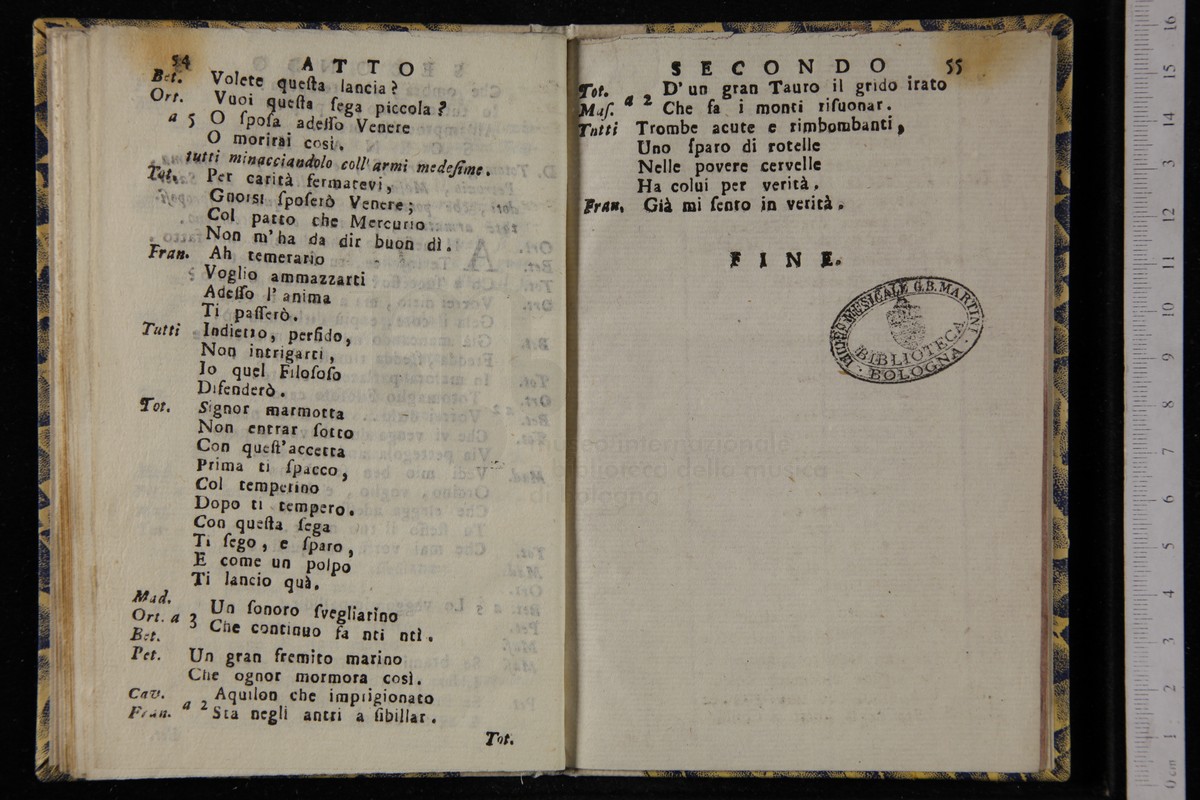 54
ATTO
Bet. Volete queſta lancia?
Ort. Vuoi queſta ſega piccola?
a 5 O ſpoſa adeſſo Venere
O morirai così.
tutti minacciandolo coll' armi medeſime.
Tot. Per carità fermatevi,
Gnorsì ſpoſerò Venere;
Col patto che Mercurio
Non m'ha da dir buon dì.
Fran. Ah temerario
Voglio ammazzarti
Adeſſo l' anima
Ti paſſerò.
Tutti Indietro, perfido,
Non intrigarti,
Io quel Filoſofo
Difenderò.
Tot. Signor marmotta
Non entrar ſotto
Con queſt'accetta
Prima ti ſpacco,
Col temperino
Dopo ti tempero.
Con queſta ſega
Ti ſego, e ſparo,
E come un polpo
Ti lancio quà.
Mad.
Ort. a 3 Un ſonoro ſvegliarino
Bet. 3 Che continuo fa nti ntì.
Pet. Un gran fremito marino
Che ognor mormora così.
Cav. Aquilon che imprigionato
Fran. a 2 Sta negli antri a ſibillar.
Tot.
SECONDO 55
Tot. D' un gran Tauro il grido irato
Maſ. a 2 Che fa i monti riſuonar.
Tutti Trombe acute e rimbombanti,
Uno ſparo di rotelle
Nelle povere cervelle
Ha colui per verità.
Fran. Già mi ſento in verità.
FINE.
MUSEO MUSICALE G.B. MARTINI
BIBLIOTECA
· BOLOGNA ·
museo internazionale
e biblioteca della musica
di bologna
0 cm 1 2 3 4 5 6 7 8 9 10 11 12 13 14 15 16